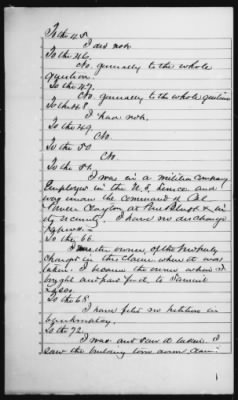 To the 45.
I did not.
To the 46.
No. generally to the whole
question.
To the 47.
No. generally to the whole question
To the 48.
I had not.
To the 49.
No.
To the 50
No.
To the 54.
I was in a military company
Employed in the U.S. service and
was under the command of Col
Powell Clayton at Pine Bluff & in
its security. I have no discharge
To the 66.
the owner of the property
charged in this claim when it was
taken. I became the owner when I
bought and paid for it. to Samuel
To the 68
I have filed no petition in
bankruptcy.
To the 72.
I was and saw it taken. I
saw the building torn down